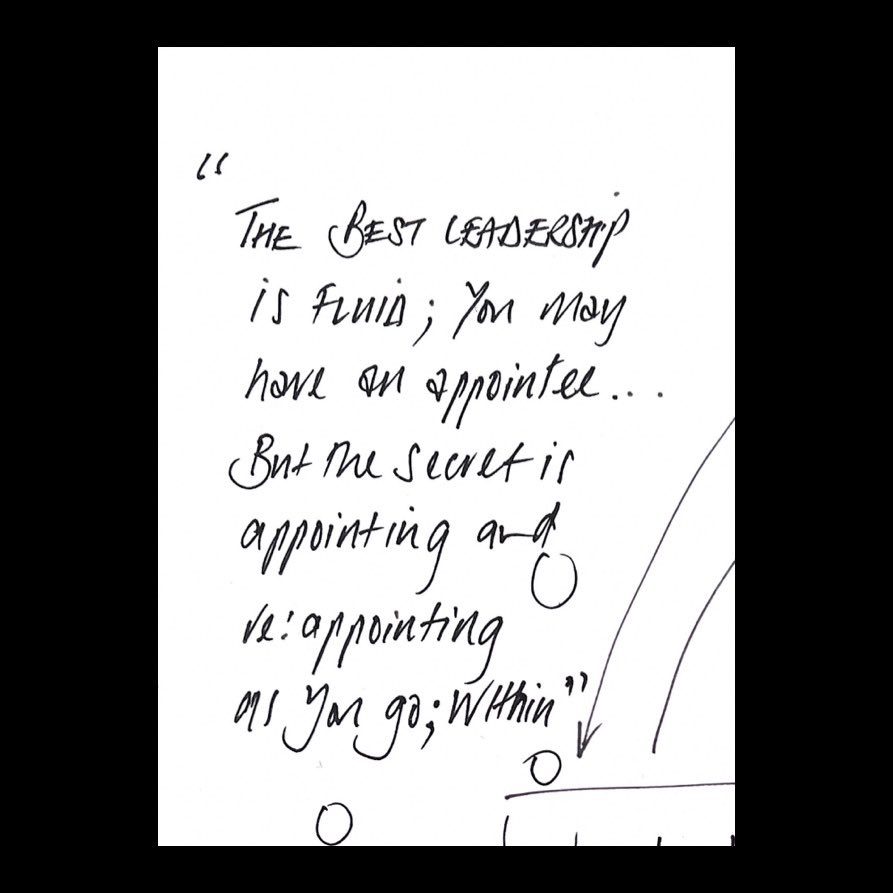 “
THE BEST LEADERSHIP
is FLUID; You may
have an appointee...
But the secret is
appointing and
re:appointing
as you go; Within”